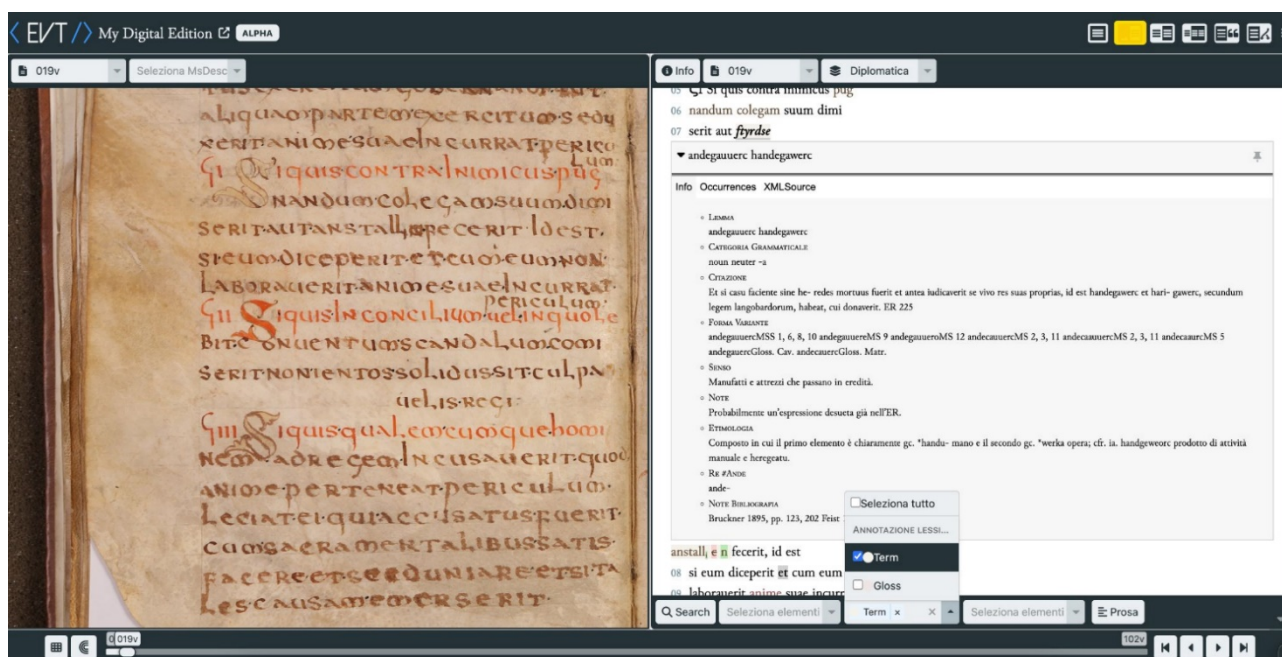 EVT My Digital Edition ALPHA
019v Seleziona MsDesc
aliquam partem exercitum sedu
xerit anime suae incurrat pericu
lum
GI Siquis contra inimicus pug
nandum colegam suum dimi
serit aut fecerit idest
si eum diceperit et cum eum non
laborauerit anime suae incurrat
periculum
GII Siquis in concilium uel in quole
bit conuentum scandalum comi
serit nonientos solidus sit culpa
uelis regi
GIII Siquis qualemcumque homi
nem ad regem incusauerit quod
anime perteneat periculum
leciat ei qui accusatus fuerit
cum sacramentalibus satis
facere et se eduniare et si ta
les causa emerserit
Info 019v Diplomatica
05 ÇI Si quis contra inimicus pug
06 nandum colegam suum dimi
07 serit aut ftyrdse
andegauuerc handegawerc
Info Occurrences XMLSource
Lemma
andegauuerc handegawerc
Categoria Grammaticale
noun neuter -a
Citazione
Et si casu faciente sine he- redes mortuus fuerit et antea iudicaverit se vivo res suas proprias, id est handegawerc et hari- gawerc, secundum
legem langobardorum, habeat, cui donaverit. ER 225
Forma Variante
andegauuercMSS 1, 6, 8, 10 andegauuereMS 9 andegauueroMS 12 andecauuercMS 2, 3, 11 andecauuercMS 2, 3, 11 andecaaurcMS 5
andegauercGloss. Cav. andecauercGloss. Matr.
Senso
Manufatti e attrezzi che passano in eredità.
Note
Probabilmente un'espressione desueta già nell'ER.
Etimologia
Composto in cui il primo elemento è chiaramente gc. *handu- mano e il secondo gc. *werka opera; cfr. ia. handgeweorc prodotto di attività
manuale e heregeatu.
Re #Ande
ande-
Note Bibliografia
Bruckner 1895, pp. 123, 202 Feist
Seleziona tutto
Annotazione lessi...
Term
Gloss
anstall, e n fecerit, id est
08 si eum diceperit et cum eum
09 laborauerit anime suae incurr
Search Seleziona elementi Term × × Seleziona elementi Prosa
019v 102v